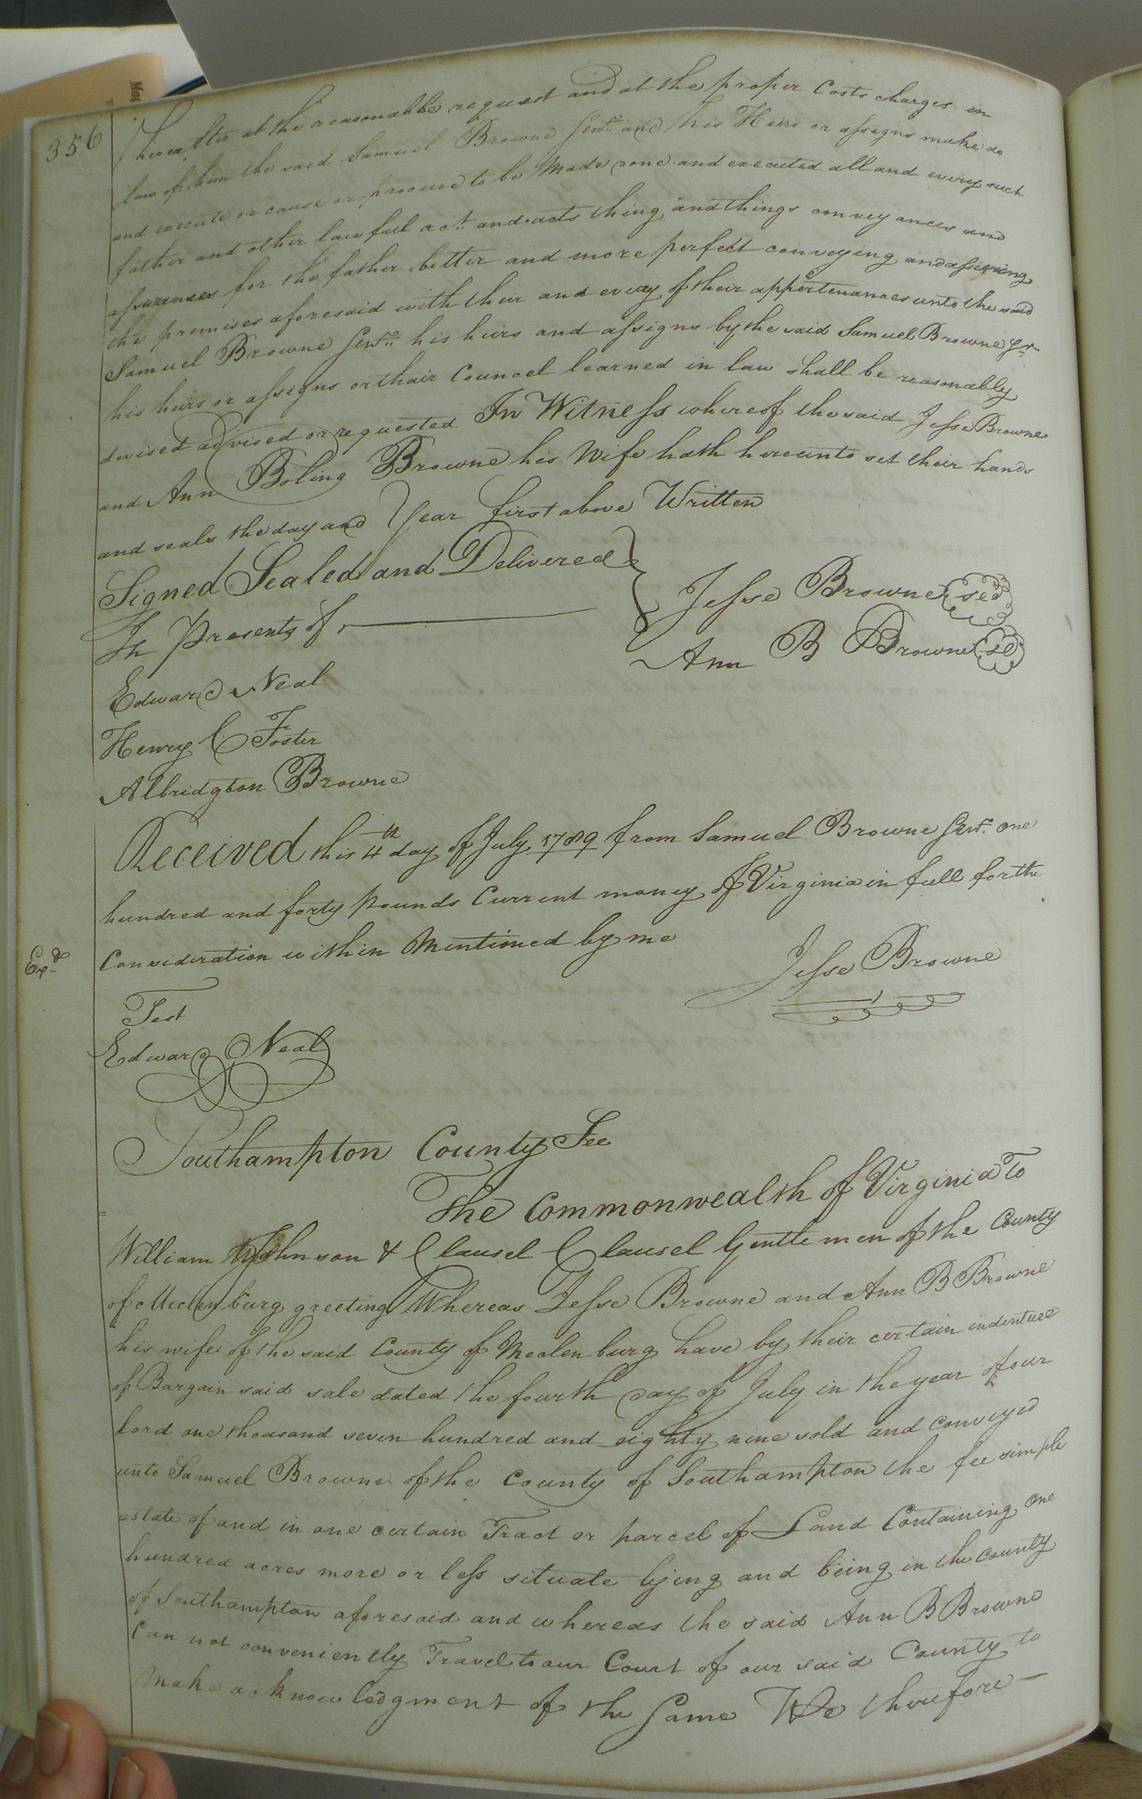 356
thereafter at the reasonable request and at the proper Costs charges in
law of him the said Samuel Browne Senr. and his Heirs or assigns make do
and execute or cause or procure to be Made done and executed all and every such
father and other lawful act and acts thing and things conveyances and
assurances for the father better and more perfect conveying and assuring
the premises aforesaid with their and every of their appertenances unto the said
Samuel Browne Senr. his heirs and assigns by the said Samuel Browne Senr
his heirs or assigns or thair Councel learned in law shall be reasonably
devised advised or requested In Witness whereof the said Jesse Browne
and Ann Boling Browne his Wife hath hereunto set their hands
and seals the day and Year first above Written
Signed Sealed and Delivered
In Presents of
Jesse Browne
Ann B Browne
Edward Neal
Henry C Foster
Albridgton Browne
Received this 4th day of July 1789 from Samuel Browne Senr. one
hundred and forty Pounds Current money of Virginia in full for the
Consideration within Mentioned by me
Exd
Jesse Browne
Test
Edward Neal
Southampton County Sec
The Commonwealth of Virginia To
William Johnson & Clausel Clausel Gentlemen of the County
of Meclenburg greeting Whereas Jesse Browne and Ann B Browne
his wife of the said County of Meclenburg have by their certain indenture
of Bargain said sale dated the fourth day of July in the year of our
lord one thousand seven hundred and eighty nine sold and conveyed
unto Samuel Browne of the County of Southampton the fee simple
estate of and in one certain Tract or parcel of Land Containing one
hundred acres more or less situate lying and being in the County
of Southampton aforesaid and whereas the said Ann B Browne
Can not conveniently Travel to our Court of our said County to
Make acknowledgment of the Same We therefore